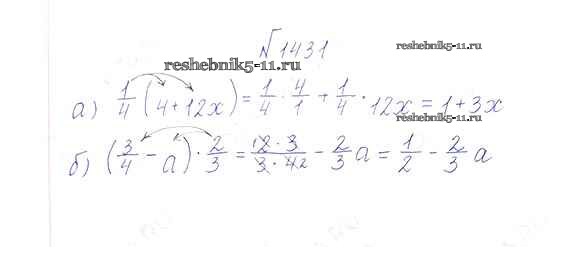 №1431
reshebnik5-11.ru
reshebnik5-11.ru
а) 1/4 (4+12x) = 1/4 · 4/1 + 1/4 · 12x = 1+3x
reshebnik5-11.ru
б) (3/4 - a) · 2/3 = 2·3/3·4 - 2/3 a = 1/2 - 2/3 a